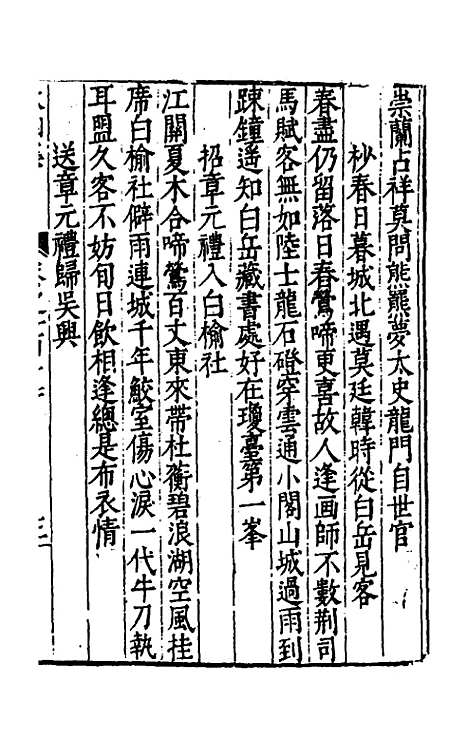 崇蘭占祥莫問熊羆夢太史龍門自世官
杪春日暮城北遇莫廷韓時從白岳見客
春盡仍留落日舂鶯啼更喜故人逢画師不數荆司
馬賦客無如陸士龍石磴穿雲通小閣山城過雨到
踈鐘遥知白岳藏書處好在瓊臺第一峯
招章元禮入白榆社
江關夏木合啼鶯百丈東來帶杜蘅碧浪湖空風挂
席白榆社僻雨連城千年鮫室傷心淚一代牛刀執
耳盟久客不妨旬日飲相逢總是布衣情
送章元禮歸吳興